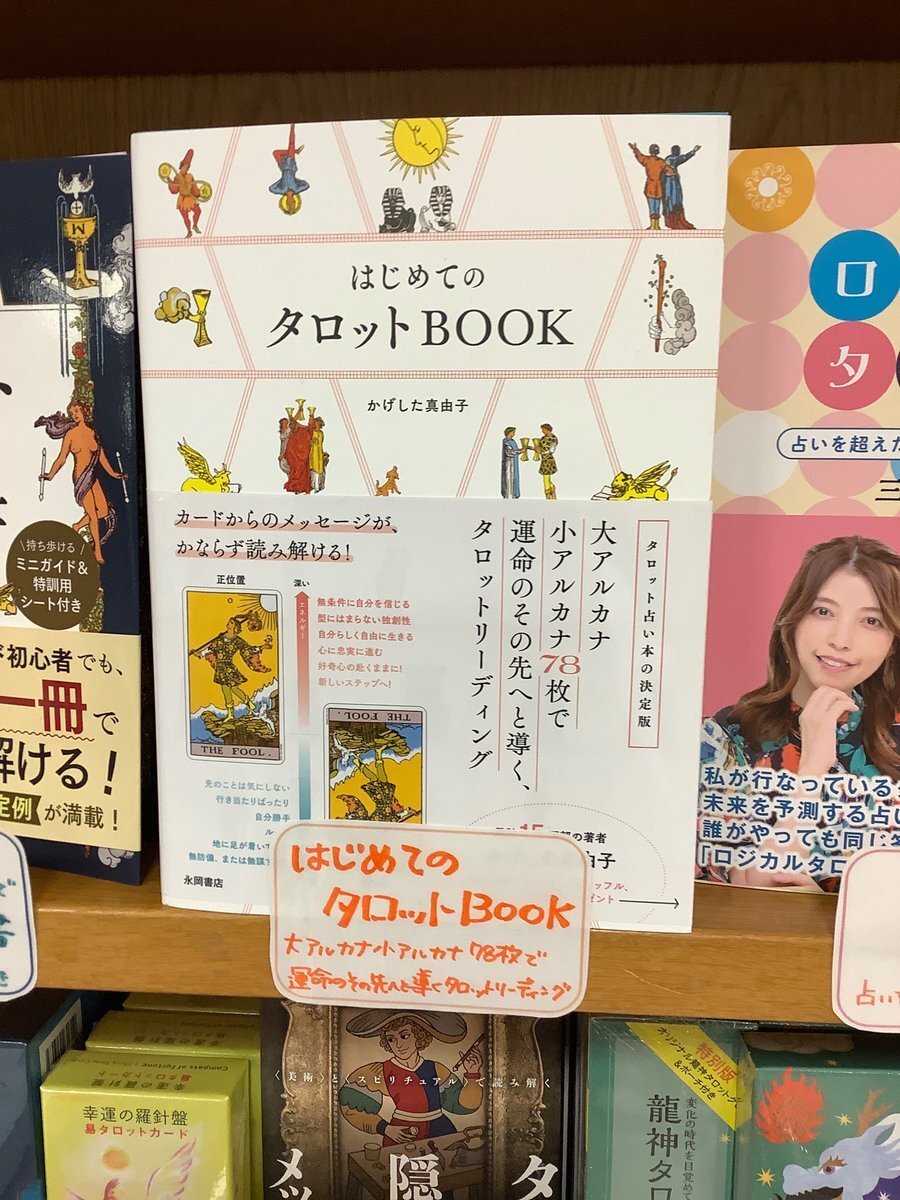 はじめての
タロットBOOK
かげした真由子
カードからのメッセージが、
かならず読み解ける!
正位置
深い
エネルギー
無条件に自分を信じる
型にはまらない独創性
自分らしく自由に生きる
心に忠実に進む
好奇心の赴くままに!
新しいステップへ!
THE FOOL.
THE FOOL.
先のことは気にしない
行き当たりばったり
自分勝手
ル
地に足が着いて
無防備、または無謀
永岡書店
タロット占い本の決定版
大アルカナ
小アルカナ78枚で
運命のその先へと導く、
タロットリーディング
の著者
由子
ッフル、
ント
はじめての
タロットBOOK
大アルカナ小アルカナ78枚で
運命のその先へと導くタロットリーディング
M
持ち歩ける
ミニガイド&
特訓用
シート付き
初心者でも、
一冊で
解ける!
定例が満載!
ロ
タ
占いを超えた
三
私が行なっている
未来を予測する占い
誰がやっても同じ答
「ロジカルタロ
占い
Compass of Fortune
幸運の羅針盤
易タロットカード
〈美術〉と〈スピリチュアル〉で読み解く
メッ
隠
タ
特別版
オリジナル龍神タロット
&ポーチ付き
変化の時代を目覚めて
龍神タロ